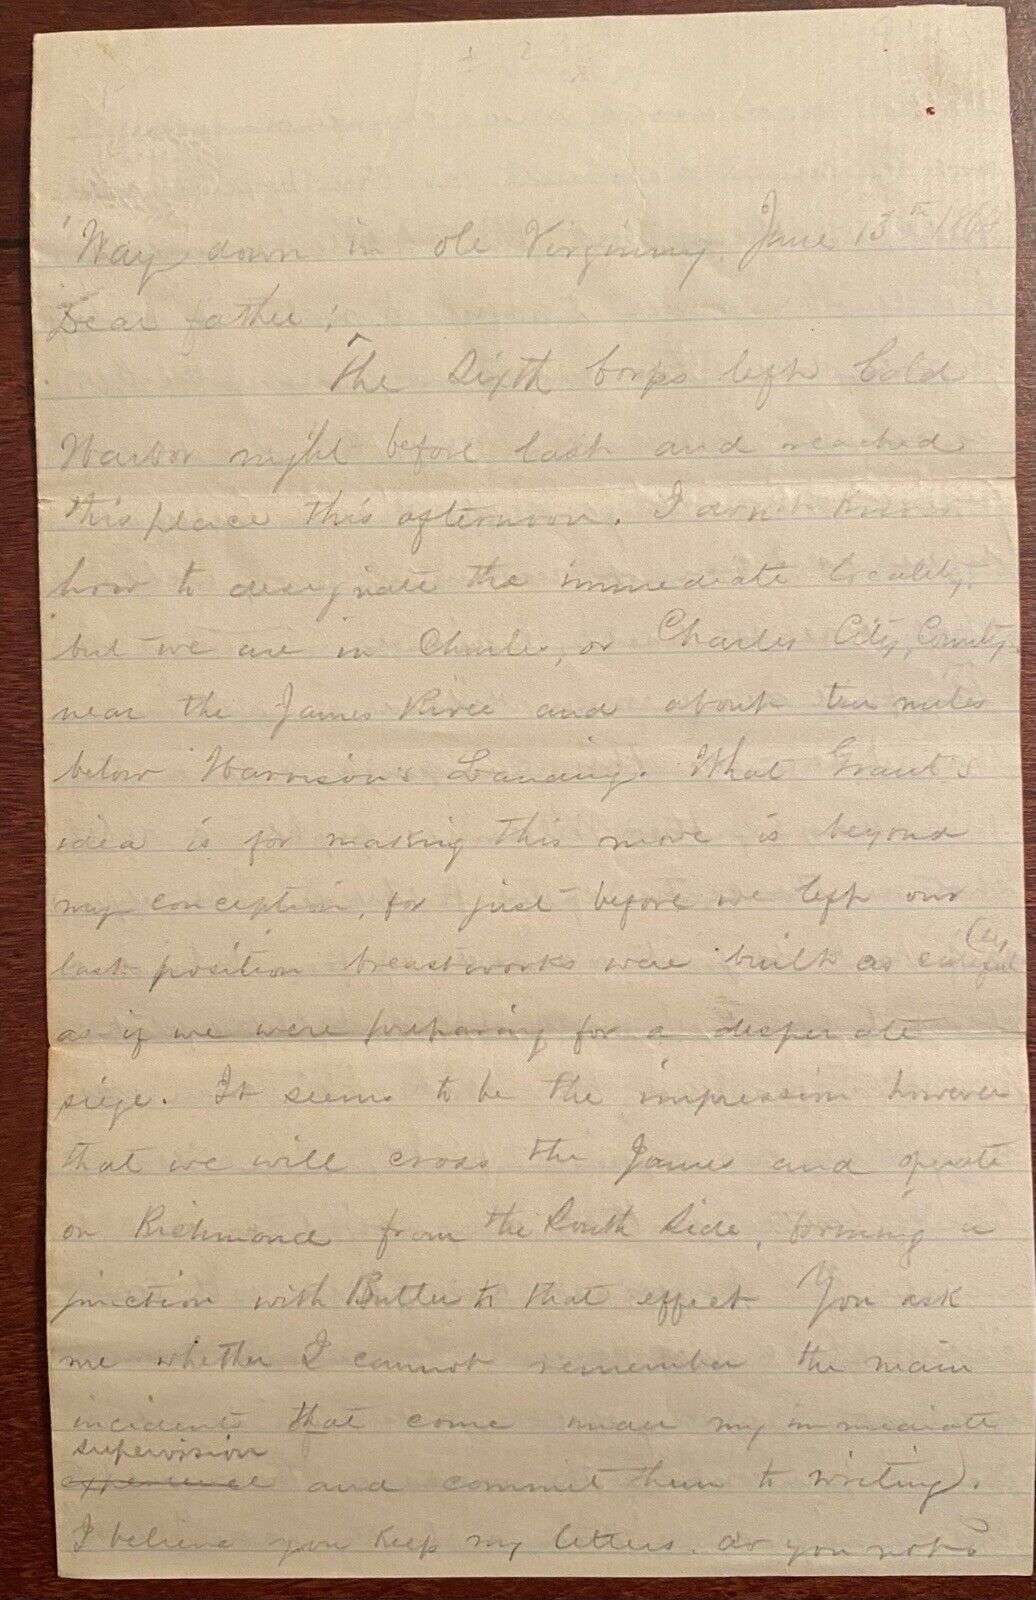 'Way down in ole Virginny. June 15th 1864
Dear father:
The Sixth Corps left Cold
Harbor night before last and reached
this place this afternoon. I don't know
how to designate the immediate locality.
but we are in Charles, or Charles City, County.
near the James River and about ten miles
below Harrison's Landing. What Grant's
idea is for making this move is beyond
my conception, for just before we left our
last position breastworks were built as
as if we were preparing for a desperate
siege. It seems to be the impression however
that we will cross the James and operate
on Richmond from the South Side, forming a
junction with Butler to that effect. You ask
me whether I cannot remember the main
incidents that come under my immediate
supervision
experience and commit them to writing.
I believe you keep my letters. do you not?